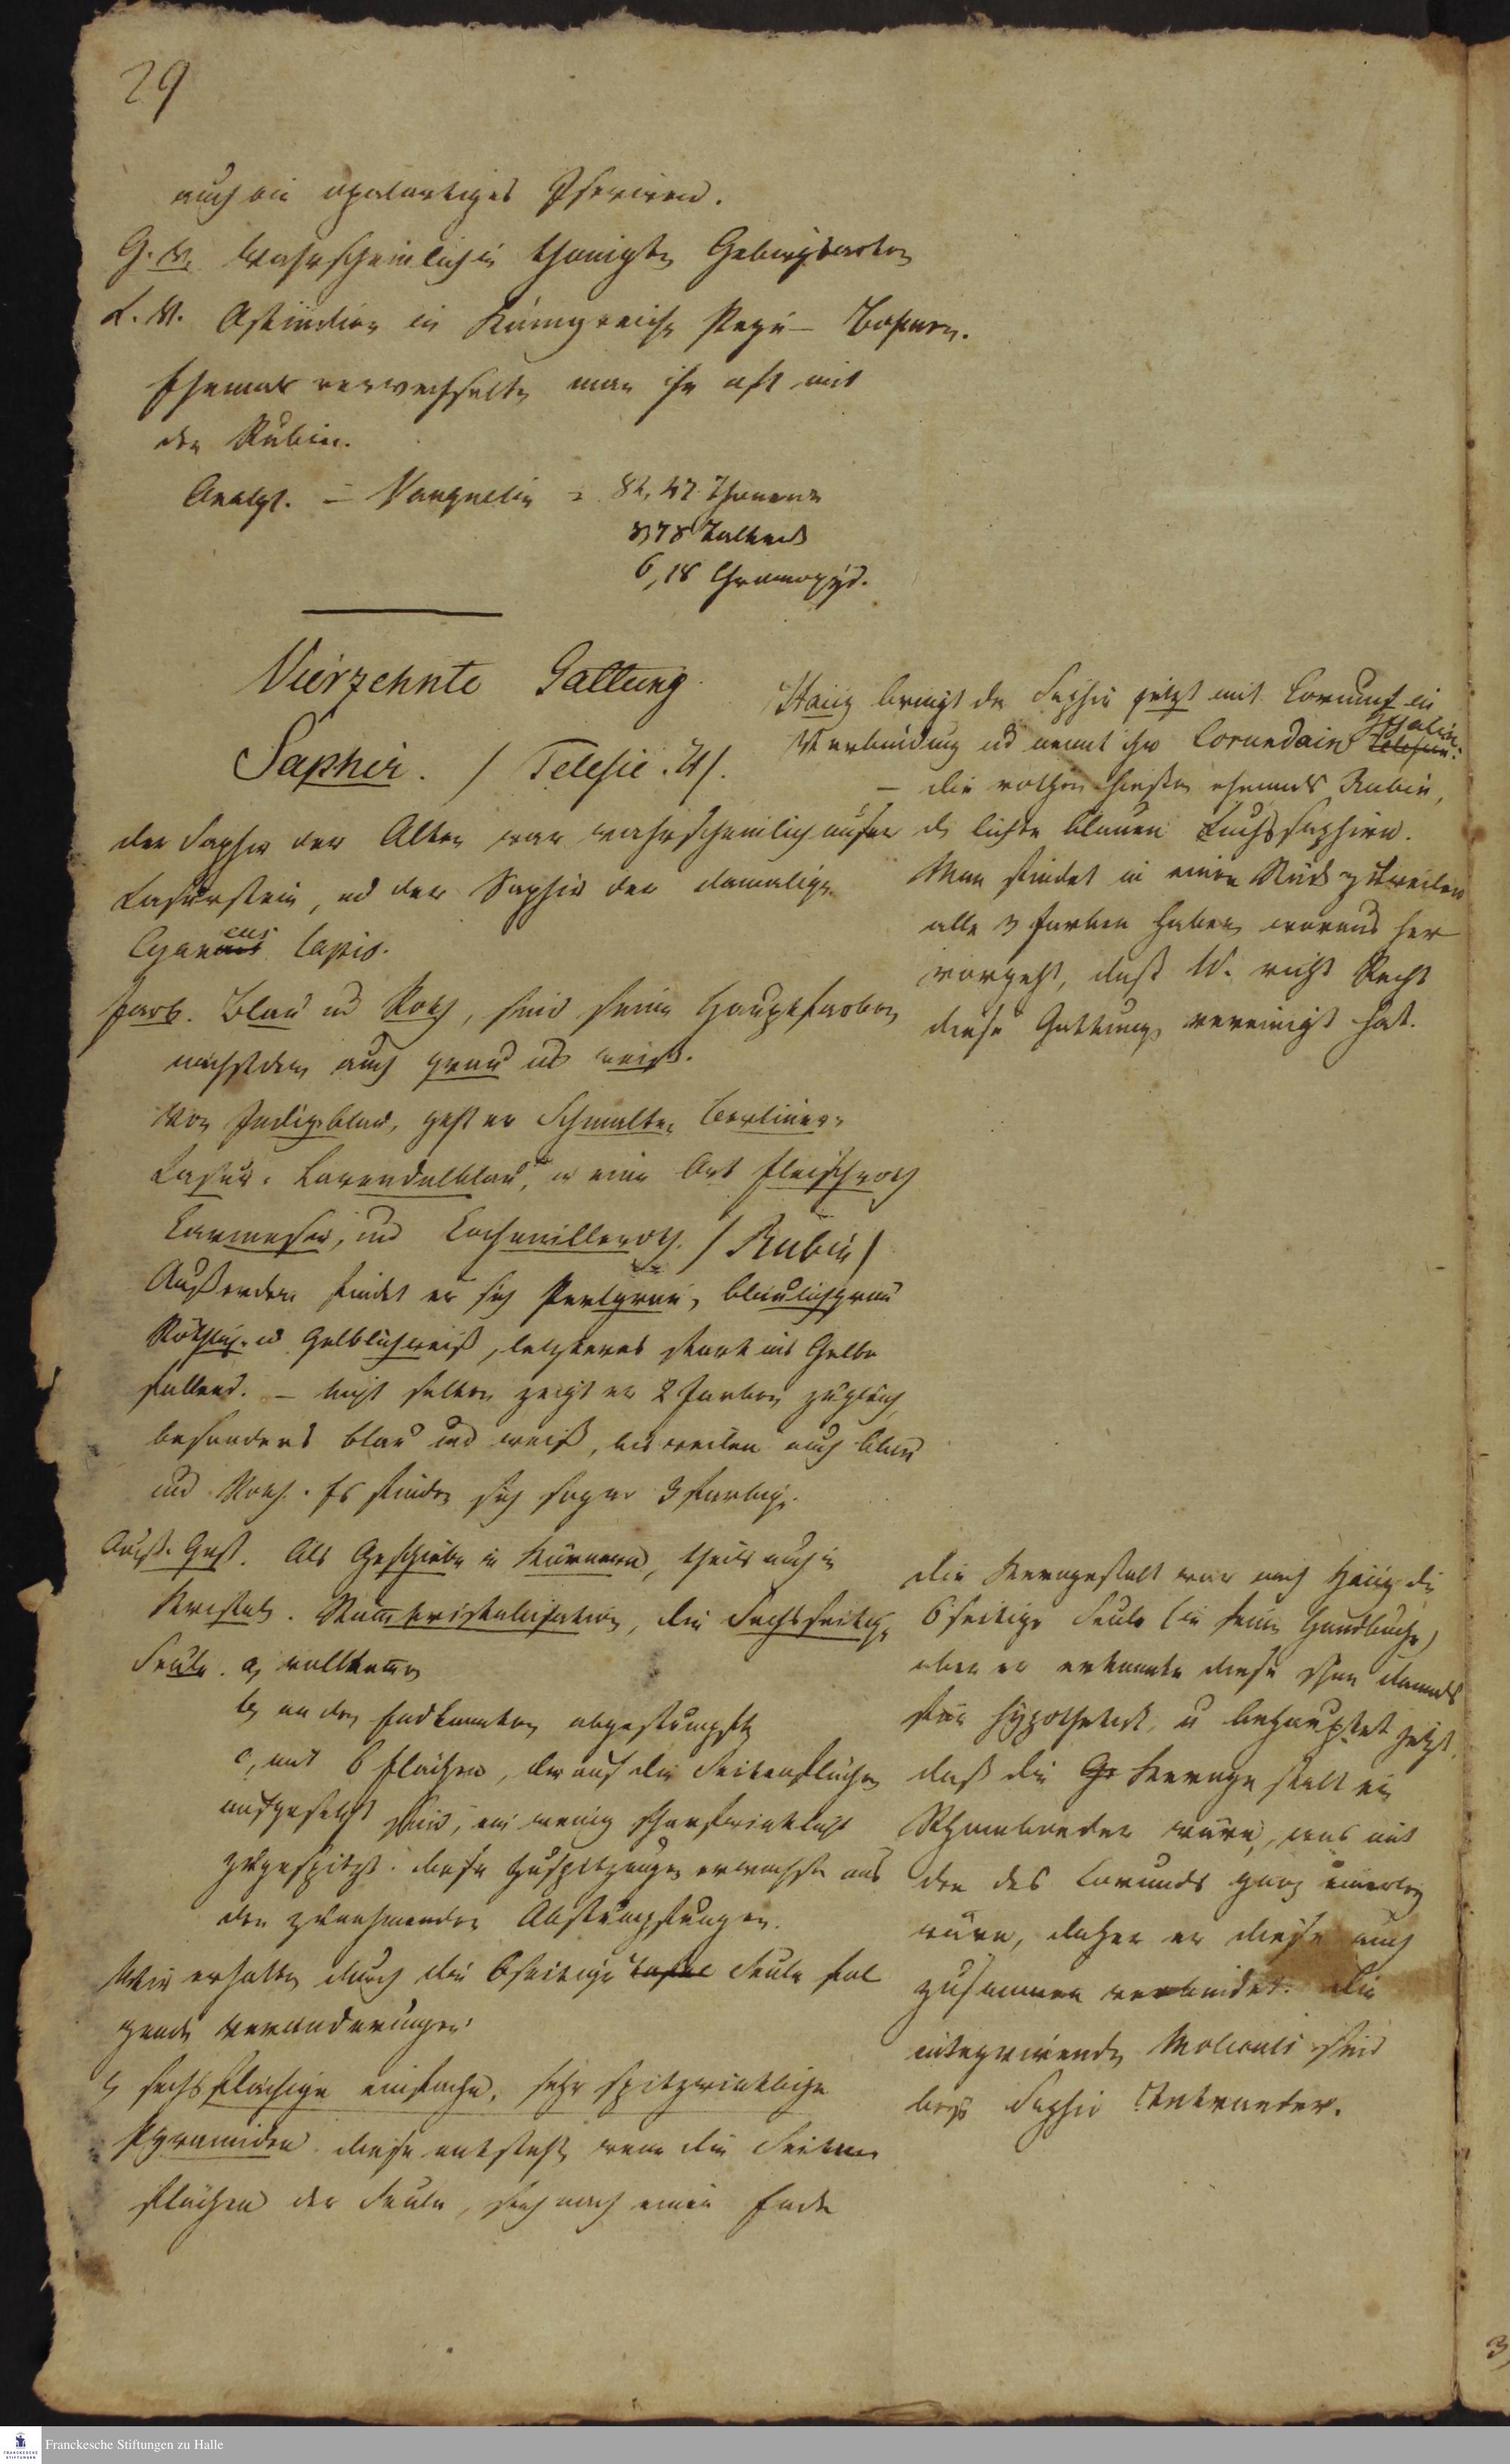 29
auch ein opalartiges Schimmern.
G. V. Wahrscheinlich in thonigten Gebirgsarten
L. V. Ostindien in Königreiche Pegu –
Ehemals verwechselte man ihn oft mit
den Rubin.
Analys. = Vauquelin = 82,47 Thonerde
8,78 Talkerde
6,18 Chromoxyd.
Vierzehnte Gattung.
Saphir. / Telesie. H/.
der Saphir der Alten war wahrscheinlich unser
Lasurstein, ud der Saphir der damalige
Cyan eus lapis.
Farb. Blau ud Roth, sind seine Hauptfarben
nächstdem auch grau ud weiß.
Von Indigblau, geht er Schmalte, Berliner,
Lasur, Lavendelblau, in eine Art fleischroth
Carmesin, und Cochenilleroth. / Rubin /
Außerdem findet er sich Perlgrau, bläulichgrau
Röthlich ud Gelblichweiß, letzteres stark ins Gelbe
fallend. – nicht selten zeigt er 2 Farben zugleich
besonders blau und weiß, bisweilen auch blau
und Roth. Es finden sich sogar 3 farbige.
Aeuß. Gest. Als Geschiebe in Körnern, theils auch in
Kristaln. Stammkristalisation, die Sechsseitige
Seule. a, vollkomen
b, an den Endkannten abgestumpft
c, mit 6 Flächen, die auf die Seitenflächen
aufgesetzt sind, ein wenig scharfwinklicht
zugespitzt. diese Zuspitzungen erwachsen aus
den zunehmenden Abstumpfungen.
Wir erhalten durch die 6seitige Tafel Seule fol
gende veränderungen
sechsflächige einfache, sehr spitzwinklige
Pyramiden diese entsteht, wenn die Seiten
flächen der Seule, sich nach einem Ende
Haüy bringt den Saphir jetzt mit Corund in
Verbindung ud nennt ihn Corundain Telesin Hyalin.
– die rothen hießen ehemals Rubin,
die lichte blauen Luchssaphiren.
Man findet in einen Stück zuweilen
alle 3 Farben haben woraus her
vorgeht, daß W. nicht Recht
diese Gattungen vereinigt hat.
die Kerngestalt war nach Haüy die
6seitige Seule (in seinen Handbuche)
aber er erkannte diese schon damals
für hypothetisch, u behauptet jetzt,
daß die Ge Kerngestalt ein
Rhomboeder wäre, was mit
den des Corunds ganz einerley
wäre, daher er diese auch
zusammen verbindet. die
integrirende Moleculs sind
beys Saphir Tetraeder.